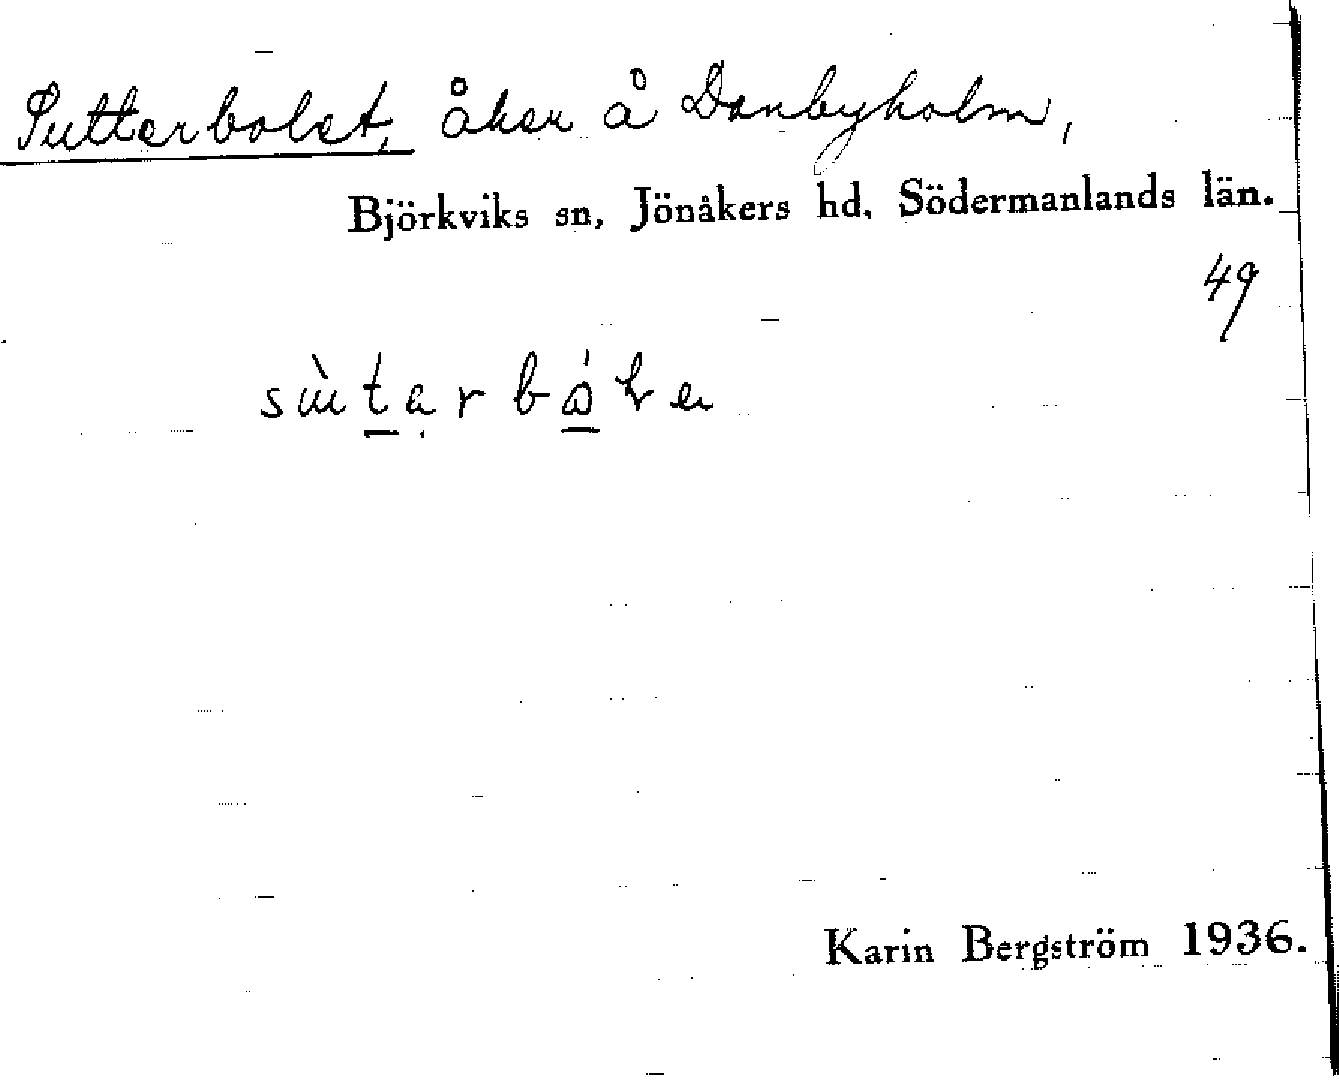 Sutterbolet, åker å Danbyholm,
Björkviks sn, Jönåkers hd, Södermanlands län.
49
Karin Bergström 1936.